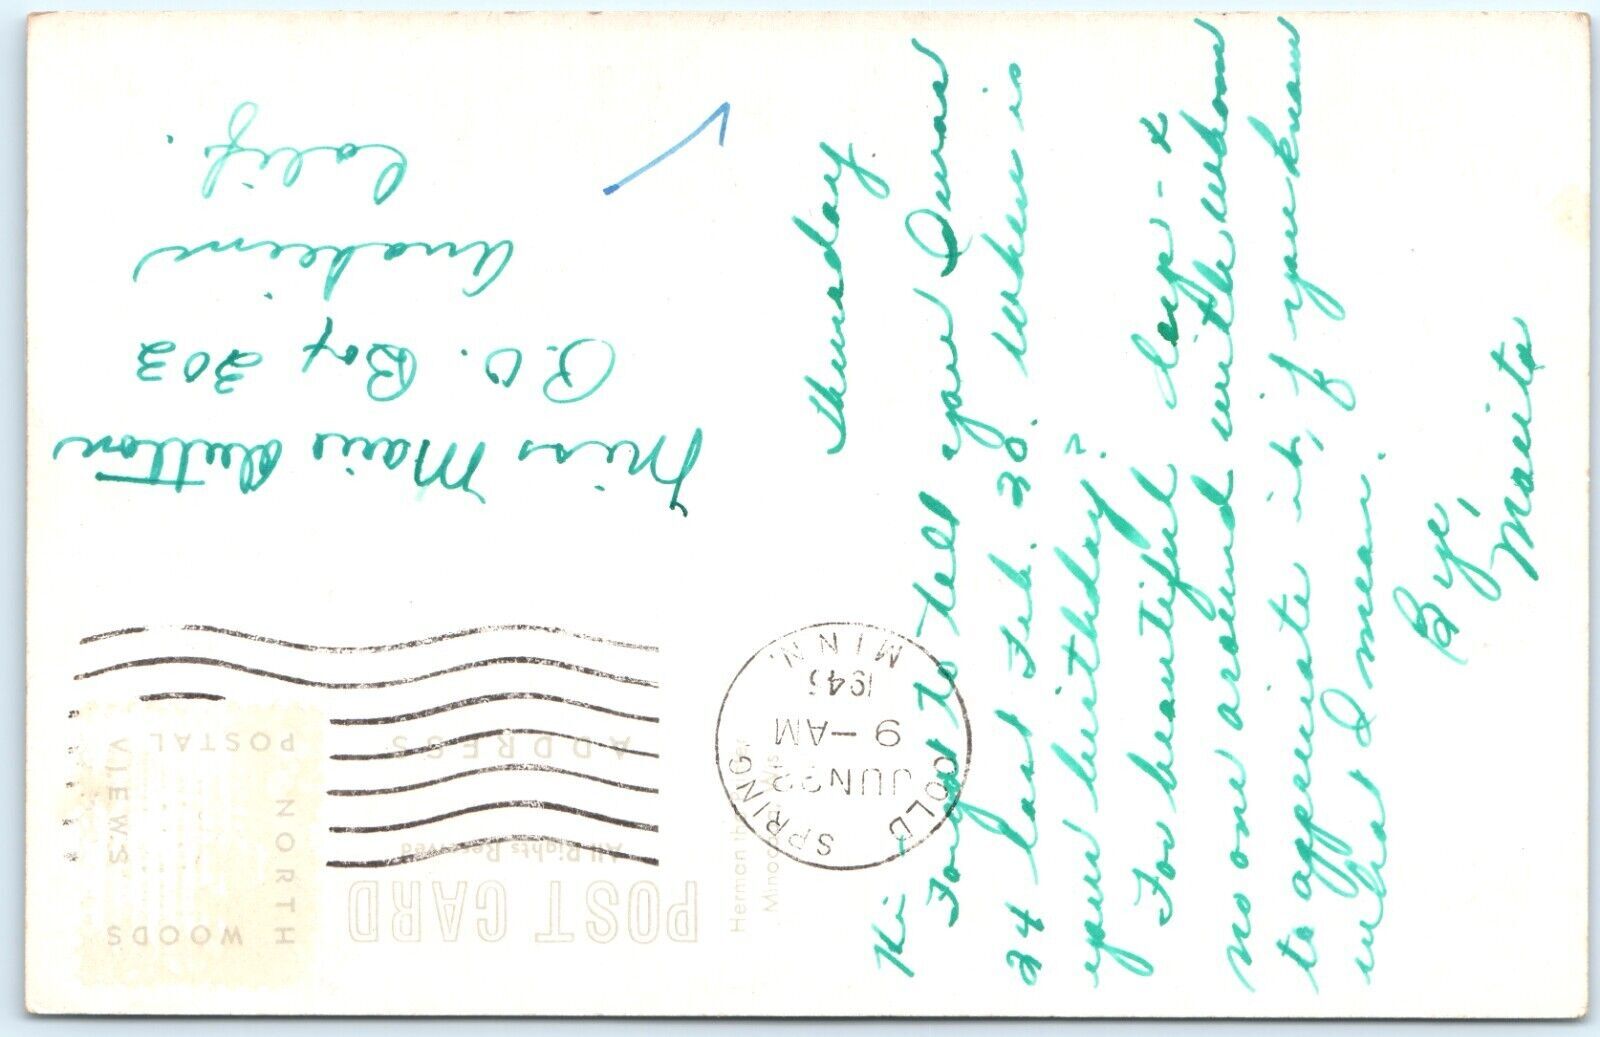 Thursday
Hi
Forgot to tell you I was
24 last Feb. 20. When is
your birthday?
For beautiful days - &
no one around with whom
to appreciate it, if you know
what I mean.
Bye,
Marita
POST CARD
All Rights Reserved
ADDRESS
NORTH WOODS
POSTAL VIEWS
COLD SPRING
JUN 22
9-AM
MINN.
Miss Marie Dutton
P.O. Box 202
Anaheim
Calif.